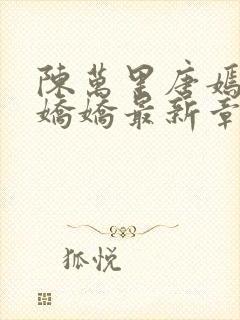 陳萬里唐嫣
嬌嬌最新章
狐悦